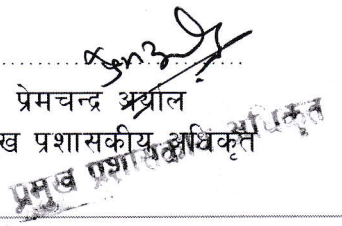 प्रेमचन्द्र अर्याल
ख प्रशासकीय अधिकृत
प्रमुख प्रशासकीय अधिकृत